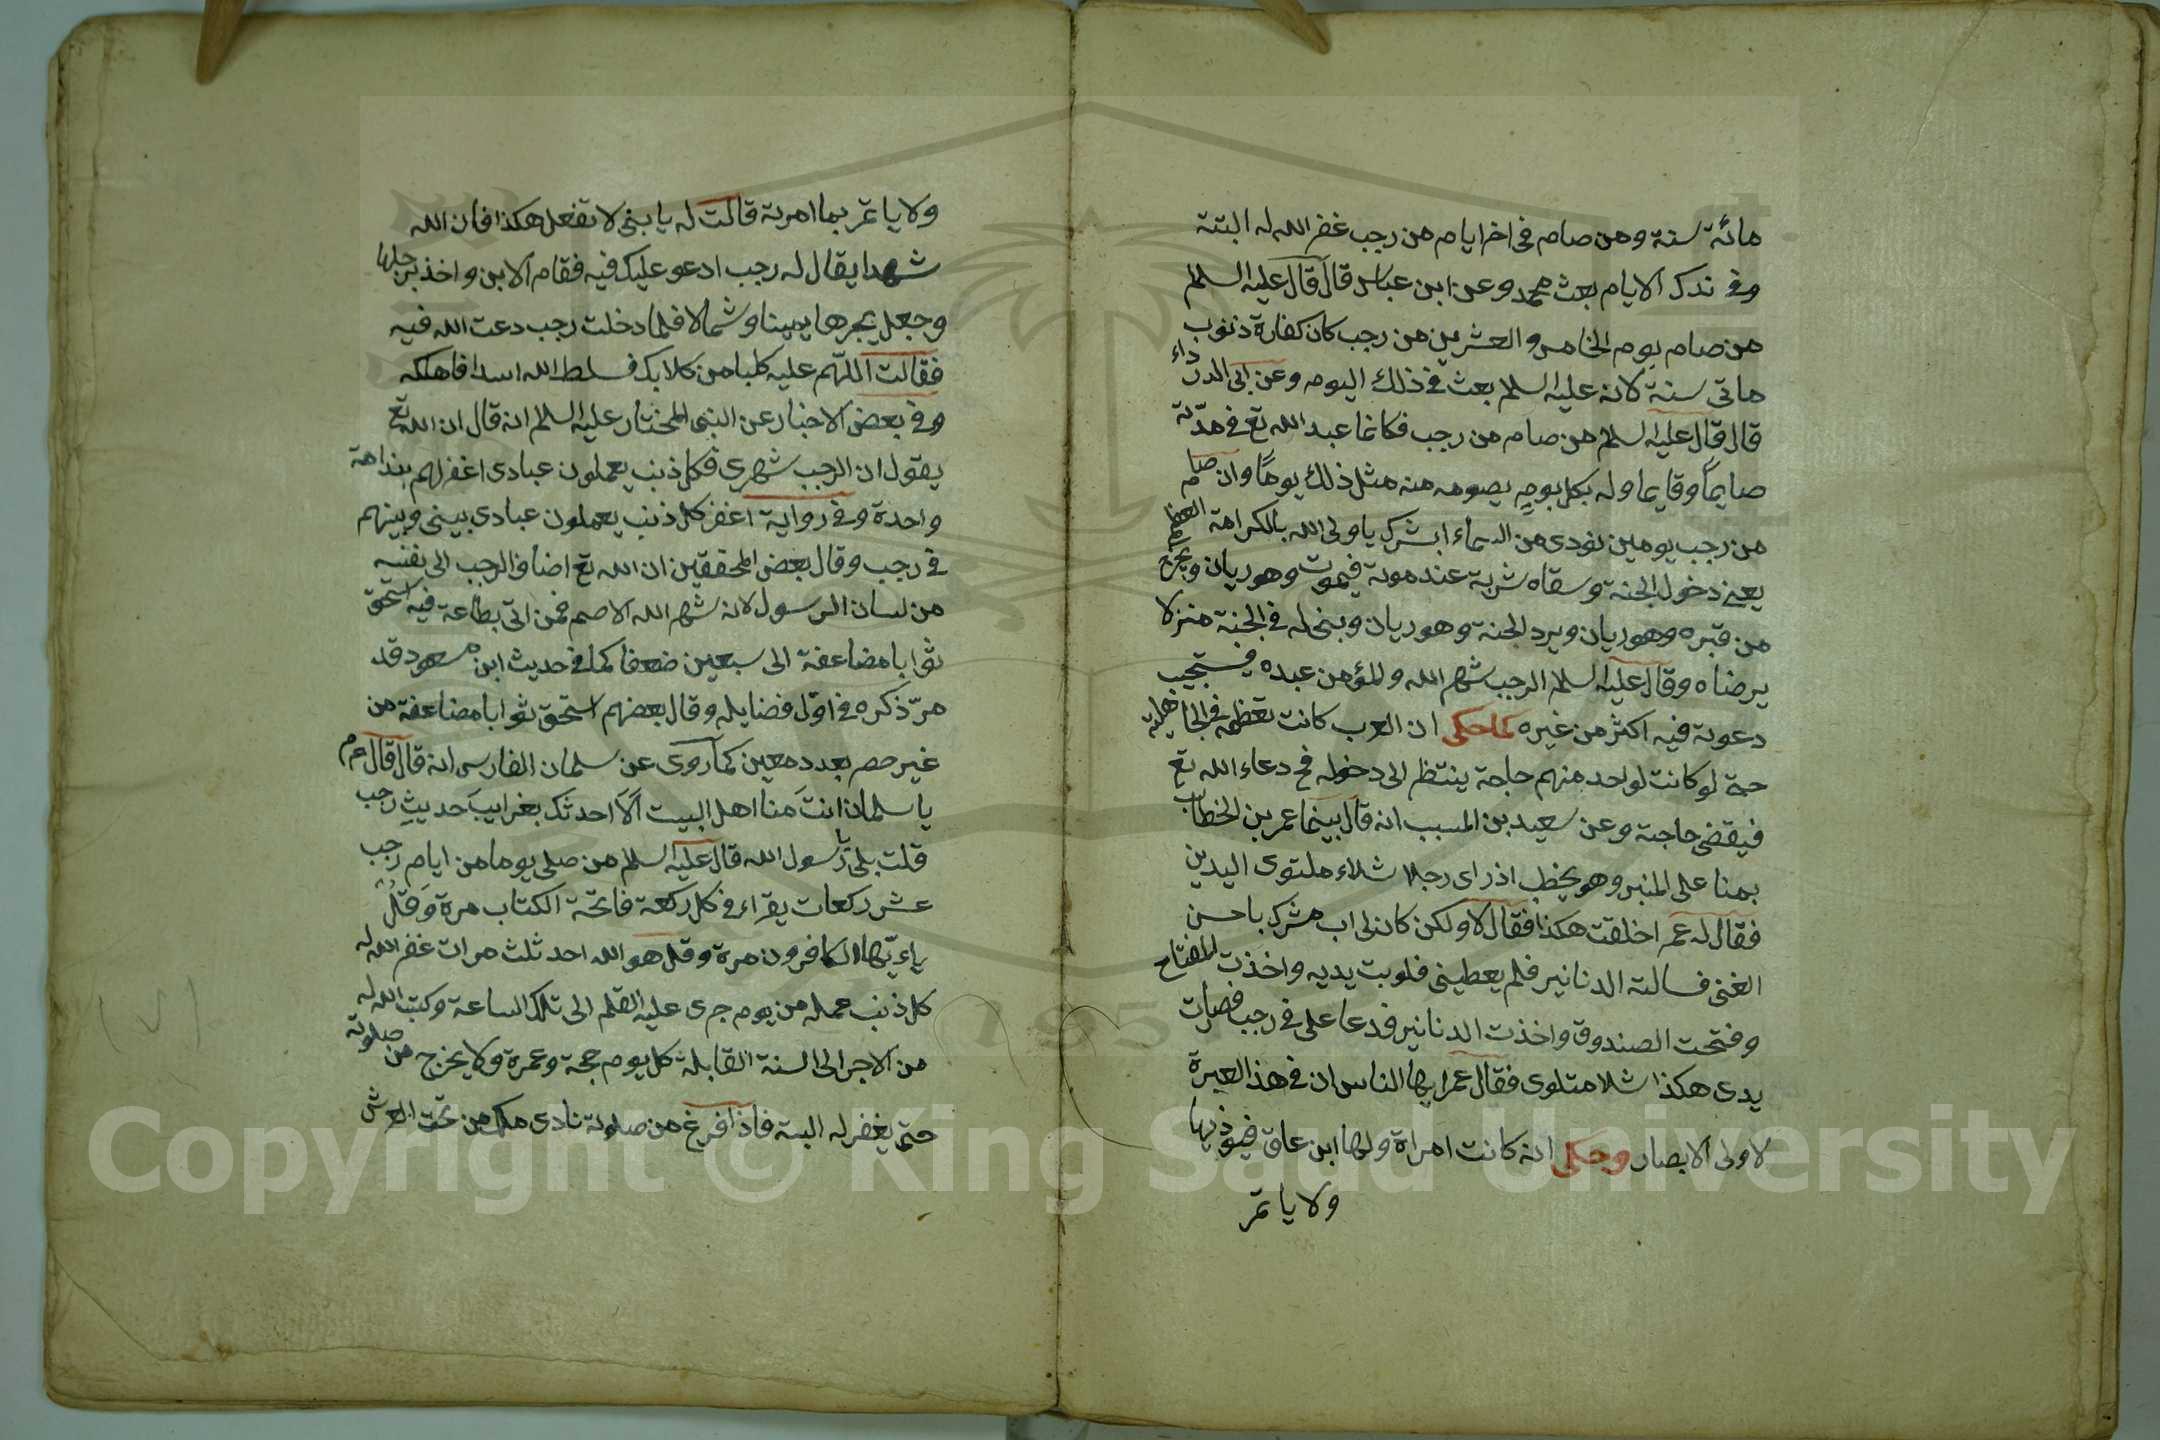 مائة سنة ومن صام في اخر ايام من رجب غفر الله له البتة
وفي تدك الايام بعث محمد وعن ابن عباس قال قال عليه السلم
من صام يوم الخامس والعشرين من رجب كان كفارة ذنوب
ماتى سنة لانه عليه السلم بعث في ذلك اليوم وعن ابى الدرداء
قال قال عليه السلم من صام من رجب فكانما عبد الله تع في مدته
صايما وقايما وله بكل يوم يصومه منه مثل ذلك يوما وان صام
من رجب يومين نودى من السماء ابشرك يا ولى الله بالكرامة العظيم
يعنى دخول الجنة وسقاه شربة عند موته فيموت وهو ريان ويخرج
من قبره وهو ريان ويرد الجنة وهو ريان وبنى له في الجنة منزلا
يرضاه وقال عليه السلم الرجب شهر الله والمؤمن عبده فيستجيب
دعوته فيه اكثر من غيره كما حكى ان العرب كانت تعظمه في الجاهلية
حتى لو كانت لواحد منهم حاجة ينتظم الى دخوله فح دعاء الله تع
فيقضى حاجته وعن سعيد بن المسبب انه قال بينما عمر بن الخطاب
بمنا على المنبر وهو يخطب اذ راى رجلا شلاء ملتوى اليدين
فقال له عمر اخلقت هكذا فقال لا ولكن كان لى اب مشرك باحسن
الغنى فسالته الدنانير فلم يعطينى فلويت يديه واخذت المفتاح
وفتحت الصندوق واخذت الدنانير فدعا على في رجب فصارت
يدى هكذا شلا متلوى فقال عمر ايها الناس ان في هذا لعبرة
لاولى الابصار وحكى انه كانت امراة ولها ابن عاق فيؤذيها
ولا ياتمر
ولا ياتمر بما امرته قالت له يا بنى لا تفعل هكذا فان الله
شهدا يقال له رجب ادعو عليك فيه فقام الابن واخذ برجلها
وجعل يجرها يمينا وشمالا فلما دخلت رجب دعت الله فيه
فقالت اللهم عليه كلبا من كلابك فسلط الله اسدا فاهلكه
وفي بعض الاخبار عن النبى المختار عليه السلم انه قال ان الله تع
يقول ان الرجب شهرى فكل ذنب يعملون عبادى اغفر لهم بندامة
واحدة وفي رواية اغفر كل ذنب يعملون عبادى بينى وبينهم
في رجب وقال بعض المحققين ان الله تع اضاف الرجب الى نفسه
من لسان الرسول لانه شهر الله الاصم فمن اتى بطاعة فيه استحق
ثوابا مضاعفة الى سبعين ضعفا كما في حديث ابن مسعود قد
مرّ ذكره في اول فضايله وقال بعضهم استحق ثوابا مضاعفة من
غير حصر بعدد معين كما روى عن سلمان الفارسى انه قال قال عم
يا سلمان انت منا اهل البيت الا احدثك بغرايب حديث رجب
قلت بلى يا رسول الله قال عليه السلم من صلى يوما من ايام رجب
عشر ركعات يقراء في كل ركعة فاتحة الكتاب مرة وقل
ياءيّها الكافرون مرة وقل هو الله احد ثلث مرات غفر الله له
كل ذنب عمله من يوم جرى عليه القلم الى تلك الساعة وكتب الله له
من الاجر الى السنة القابلة كل يوم حجة وعمرة ولا يخرج من صلوته
حتى يغفر له البتة فاذا فرغ من صلوته نادى ملك من تحت العرش
Copyright © King Saud University